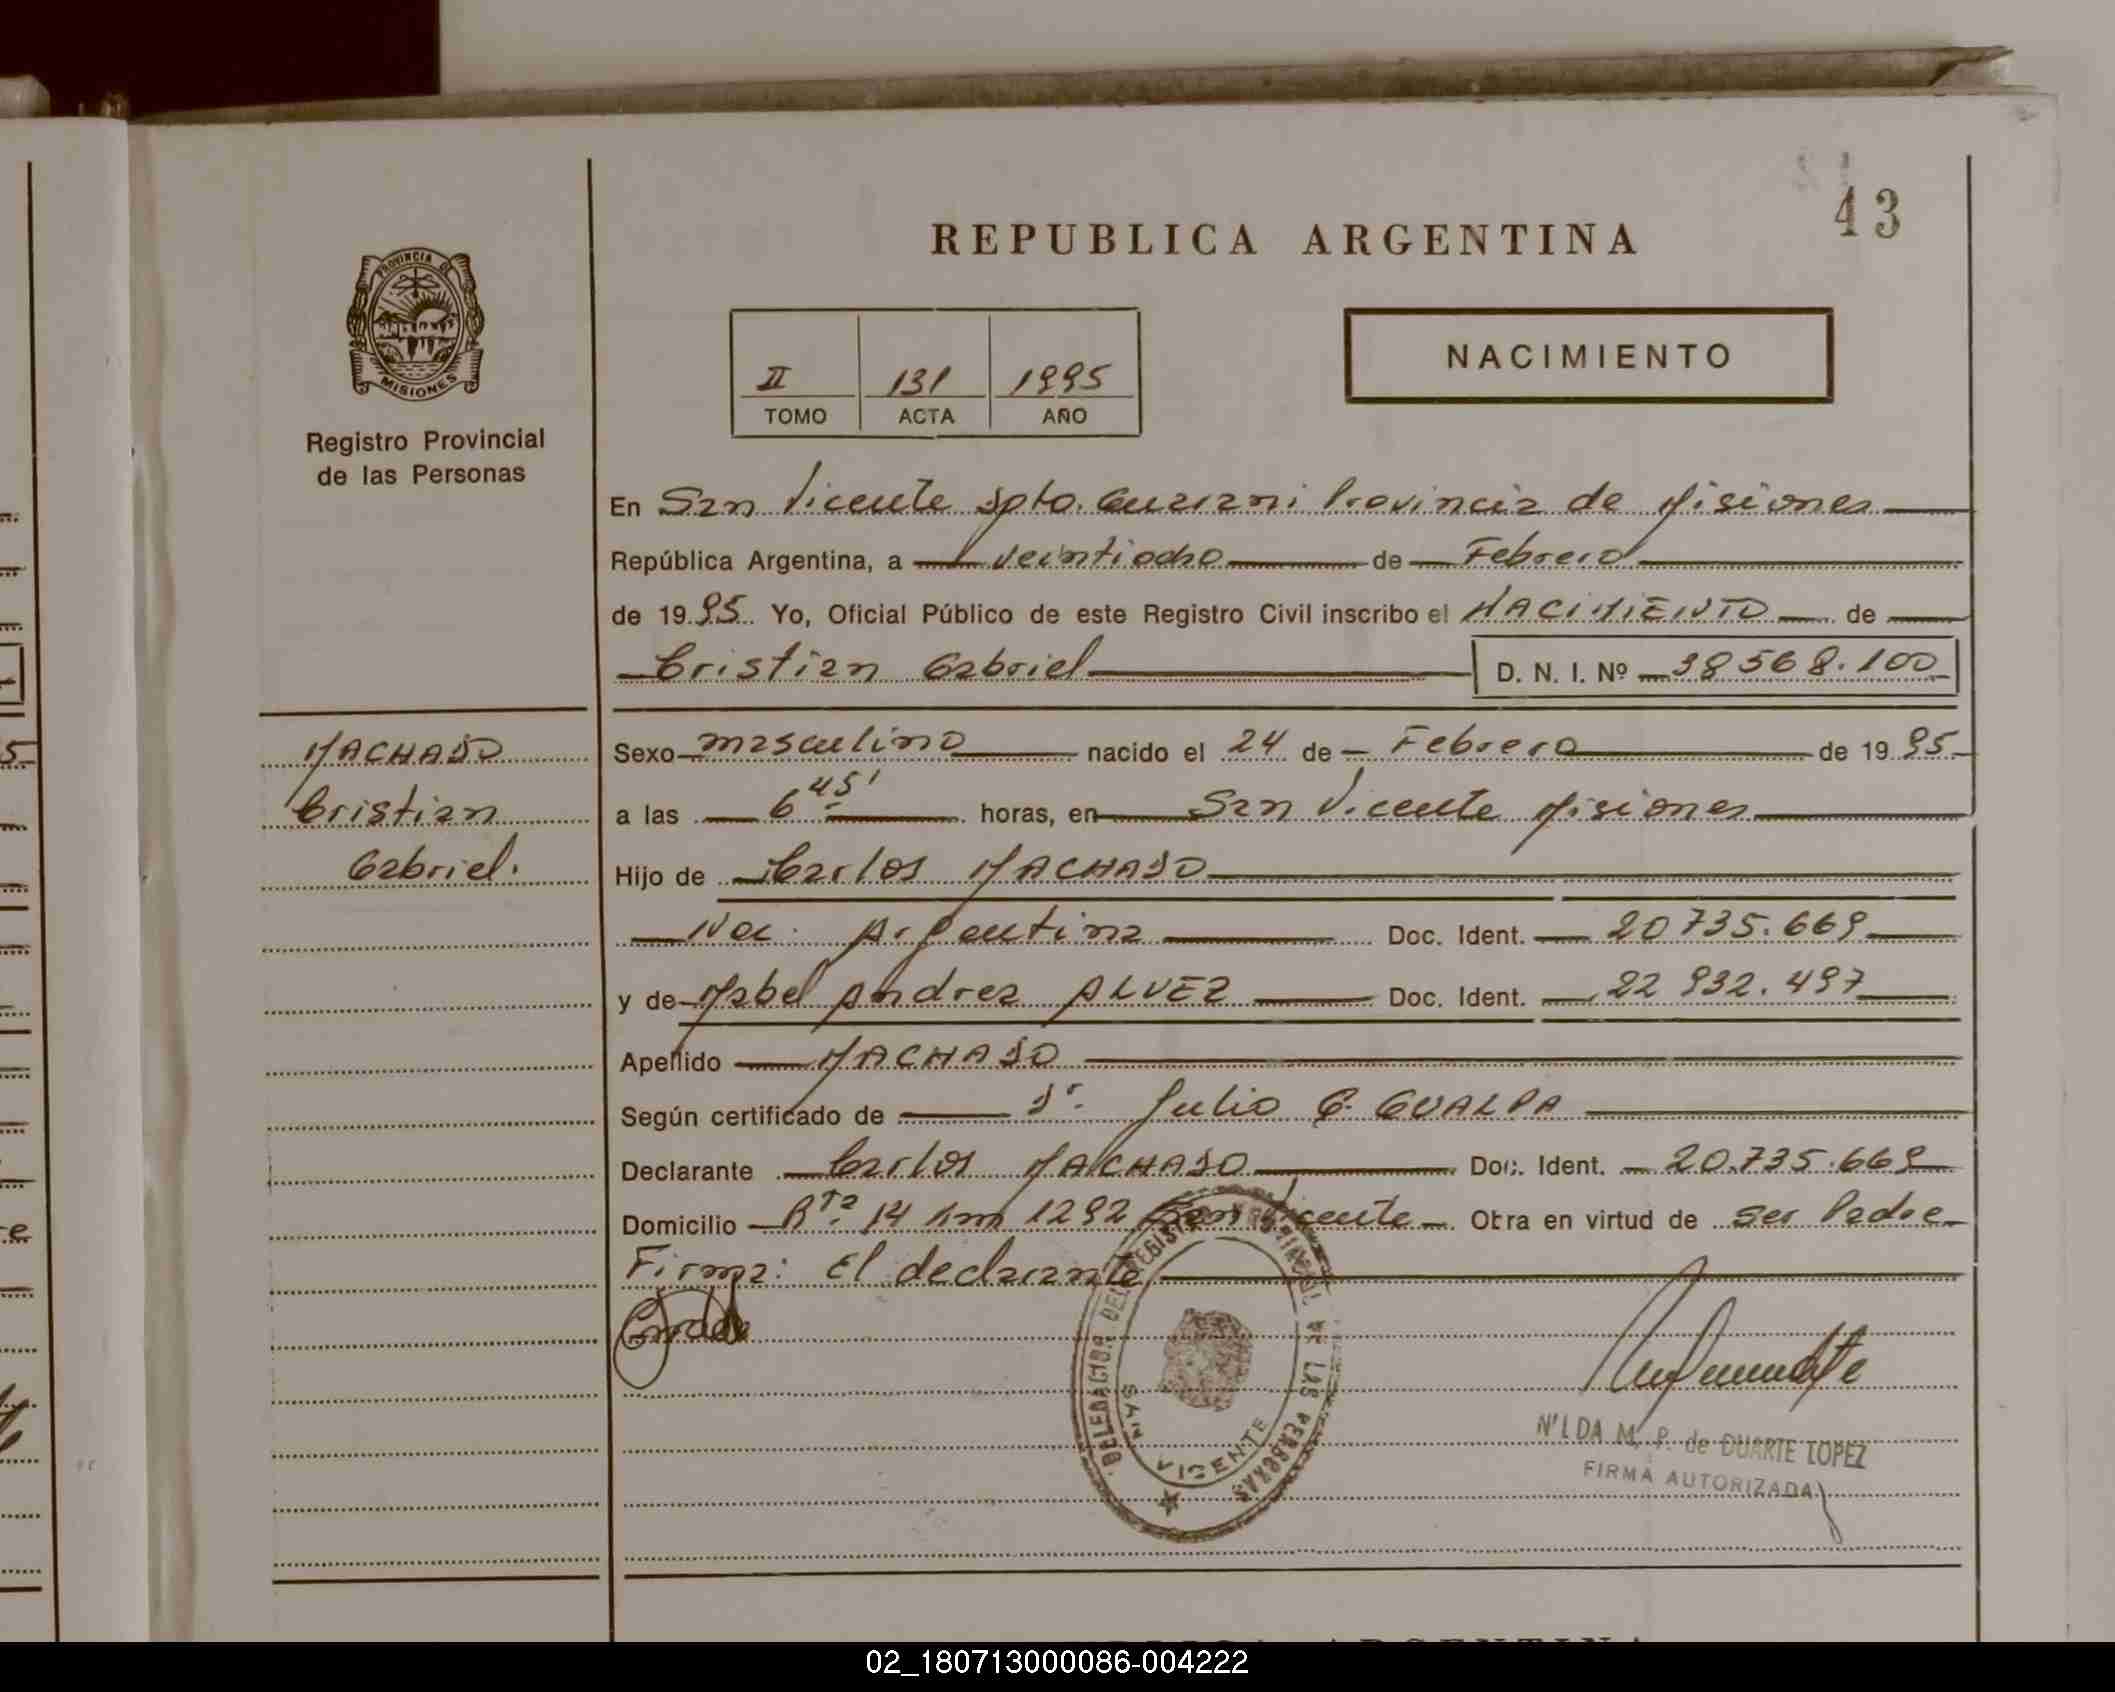 43
REPUBLICA ARGENTINA
PROVINCIA DE
MISIONES
Registro Provincial
de las Personas
II 131 1995
TOMO ACTA AÑO
NACIMIENTO
En San Vicente Dpto. Guarani Provincia de Misiones
República Argentina, a veintiocho de Febrero
de 1995 Yo, Oficial Público de este Registro Civil inscribo el NACIMIENTO de
Cristian Gabriel D. N. I. Nº 38568.100
MACHADO
Cristian
Gabriel.
Sexo masculino nacido el 24 de Febrero de 1995
a las 6 45' horas, en San Vicente Misiones
Hijo de Carlos MACHADO
Nac. Argentina Doc. Ident. 20735.669
y de Mabel Andrea ALVEZ Doc. Ident. 22932.497
Apellido MACHADO
Según certificado de Dr. Julio C. GUALPA
Declarante Carlos MACHADO Doc. Ident. 20.735.669
Domicilio Rta 14 Km 1292 San Vicente Obra en virtud de ser Padre
Firma: El declarante
DELEGACION DEL REGISTRO PROVINCIAL DE LAS PERSONAS
SAN VICENTE
NILDA M. P. de DUARTE LOPEZ
FIRMA AUTORIZADA
02_180713000086-004222